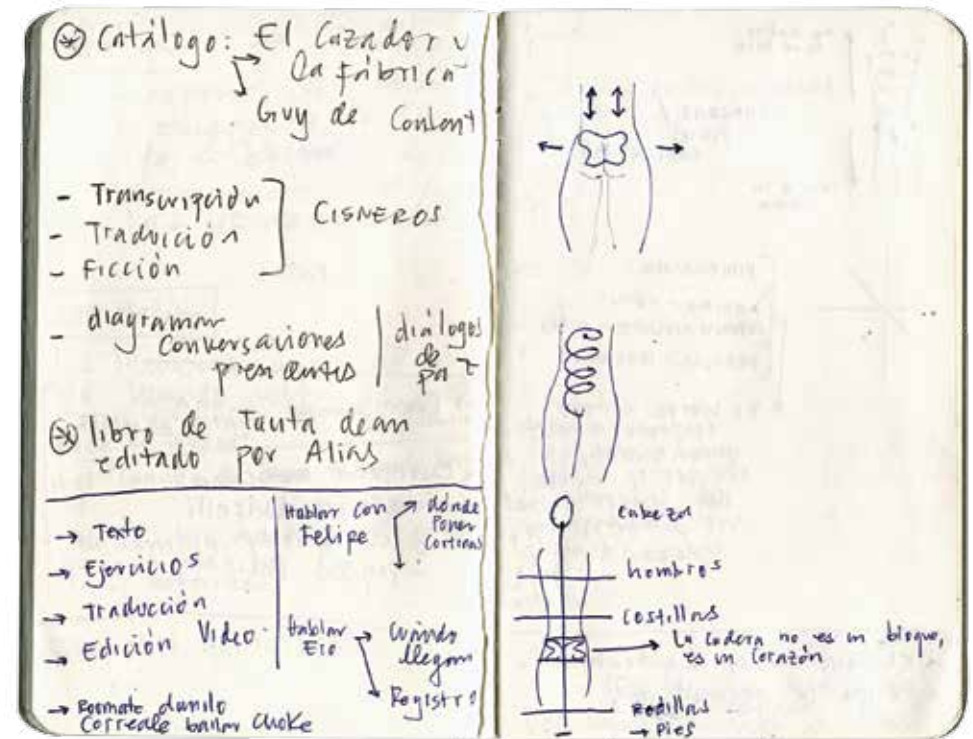 Catálogo: El Cazador y
la Fábrica
Guy de
- Transcripción
- Traducción
- Ficción
CISNEROS
- diagramar
conversaciones
diálogos
de
libro de
editado por Alias
→ Texto
→ Ejercicios
→ Traducción
→ Edición Video
Hablar con
Felipe
dónde
Poner
Cortinas
Hablar
cuándo
llegan
Registro
danilo
bailar choke
cabeza
hombros
costillas
La cadera no es un bloque,
es un corazón
Rodillas
→ Pies